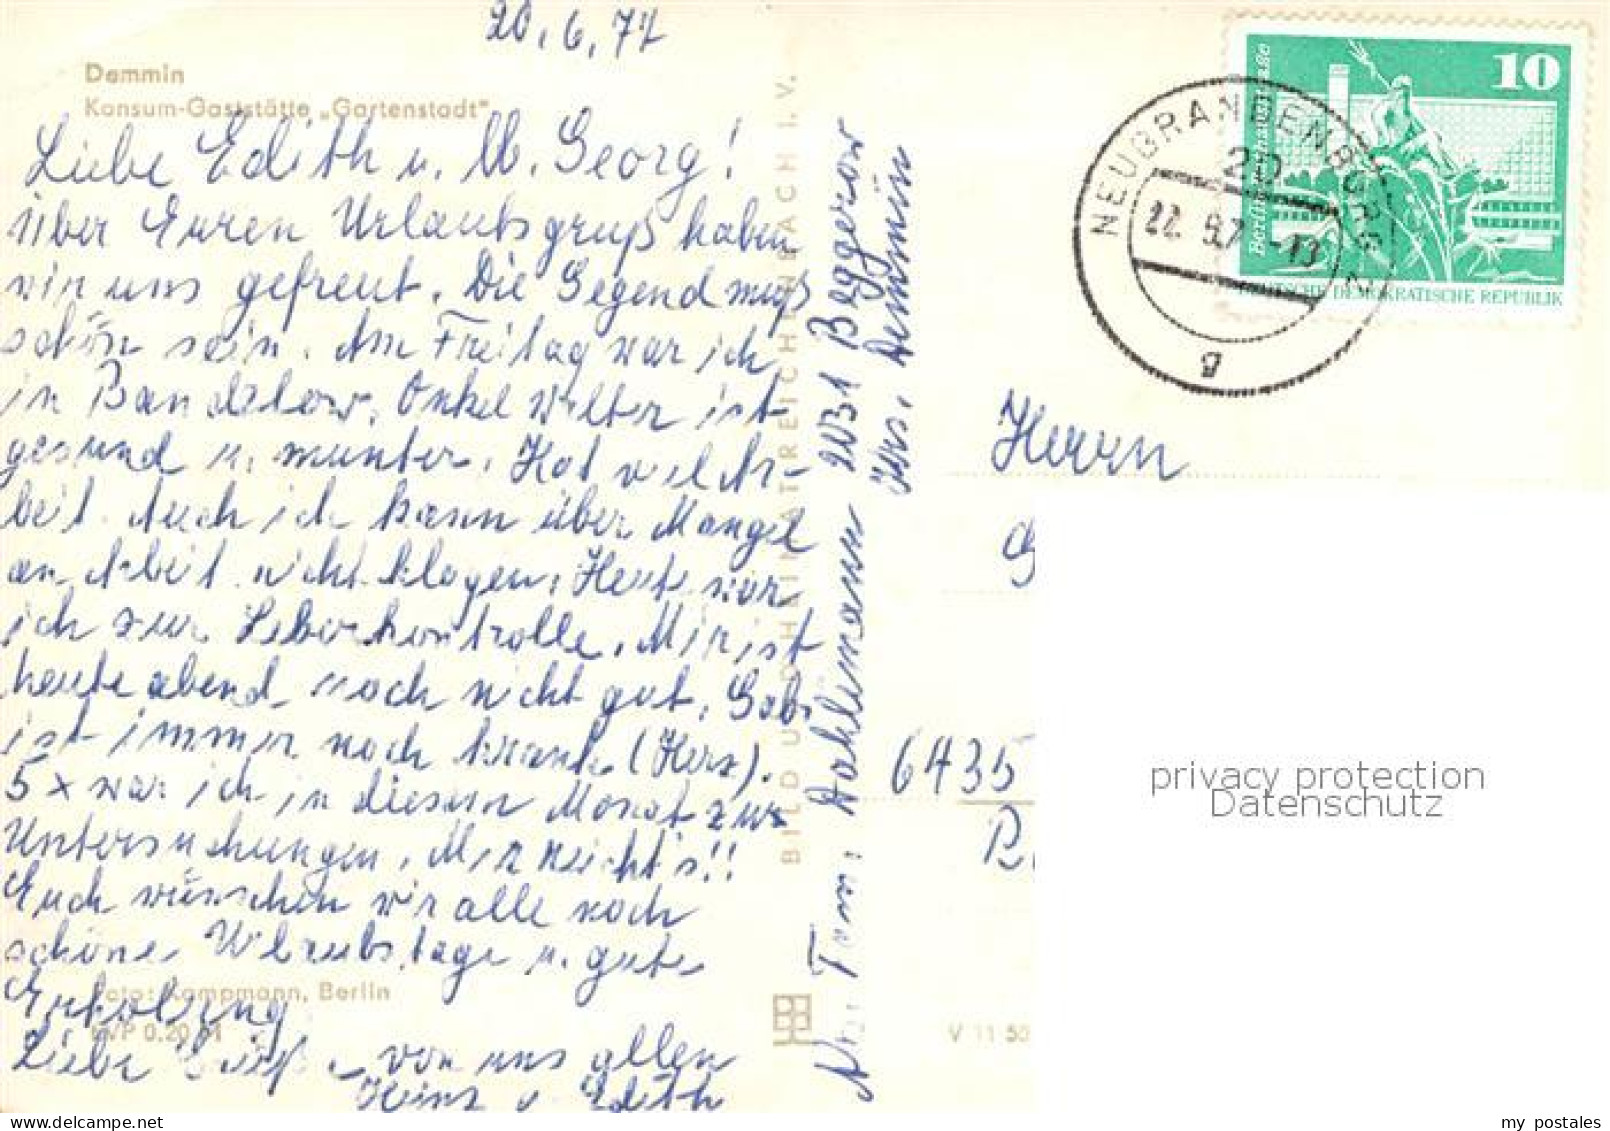 20.6.77
Demmin
Konsum-Gaststätte „Gartenstadt"
Liebe Edith u. M. Georg!
über Euren Urlaubsgruß haben
wir uns gefreut. Die Gegend muß
schön sein. Am Freitag war ich
in Bandelow. Onkel Walter ist
gesund u. munter. Hat viel Ar-
beit. Auch ich kann über Mangel
an Arbeit nicht klagen. Heute war
ich zur Leberkontrolle. Mir ist
heute abend noch nicht gut. Gabi
ist immer noch krank (Herz).
5 x war ich in diesem Monat zur
Untersuchungen. Mir reicht's!!
Euch wünschen wir alle noch
schöne Urlaubstage u. gute
Erholung
Foto: Kampmann, Berlin
EVP 0.20 M
Liebe Grüße von uns allen
Heinz u. Edith
BILD UND HEIMAT REICHENBACH I. V.
Fam. Dahlemann 2031 Beggerow
Krs. Demmin
V 11 50
NEUBRANDENBURG 2
20
22. 6.7 -10
g
10
Berlin, Rathausstraße
DEUTSCHE DEMOKRATISCHE REPUBLIK
Herrn
G
6435
P.
privacy protection
Datenschutz
my postales